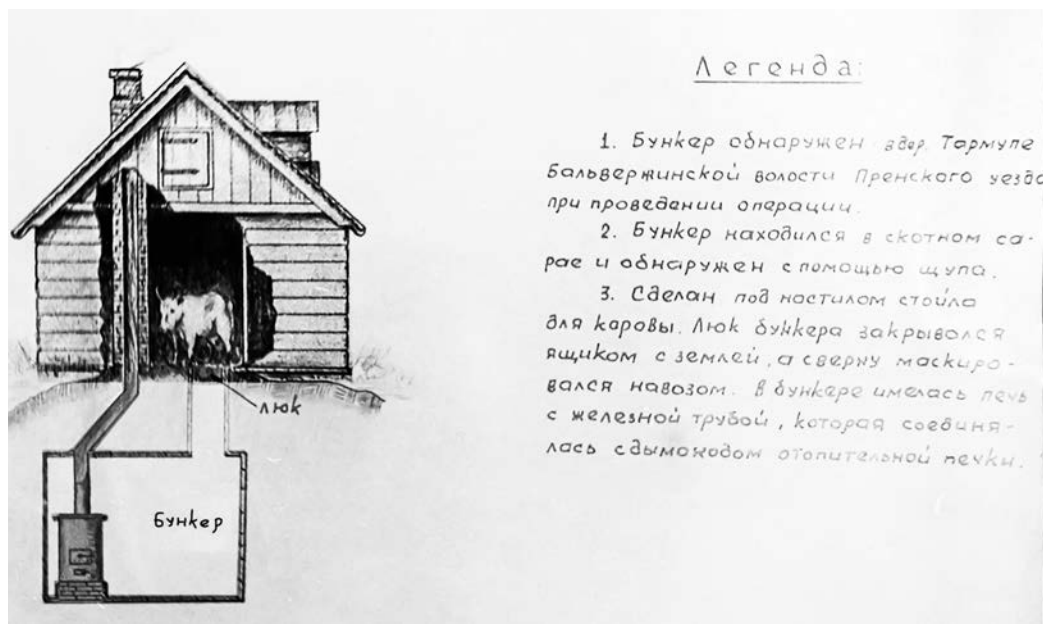 Легенда:
1. Бункер обнаружен в дер. Тармупе
Бальвержинской волости Пренского уезда
при проведении операции.
2. Бункер находился в скотном са-
рае и обнаружен с помощью щупа.
3. Сделан под настилом стойла
для каровы. Люк бункера закрывался
ящиком с землей, а сверху маскиро-
вался навозом. В бункере имелась печь
с железной трубой, которая соединя-
лась с дымоходом отопительной печки.
люк
Бункер